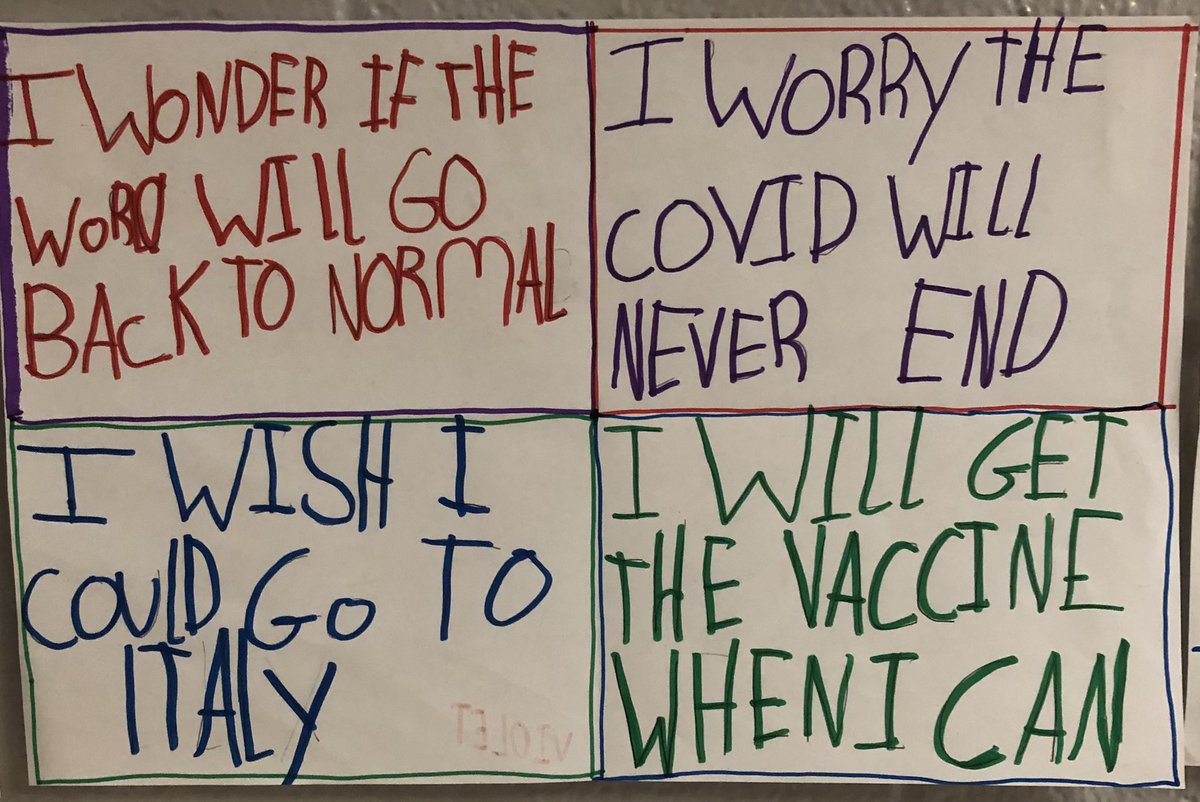 I WONDER IF THE
WORD WILL GO
BACK TO NORMAL
I WORRY THE
COVID WILL
NEVER END
I WISH I
COULD GO TO
ITALY
VIOLET
I WILL GET
THE VACCINE
WHEN I CAN